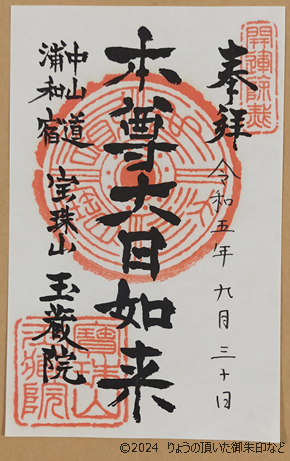 開運厄除
奉拝
令和五年九月三十日
本尊大日如来
中山道
浦和宿
宝珠山
玉蔵院
寶珠山
玉蔵院
©2024 りょうの頂いた御朱印など